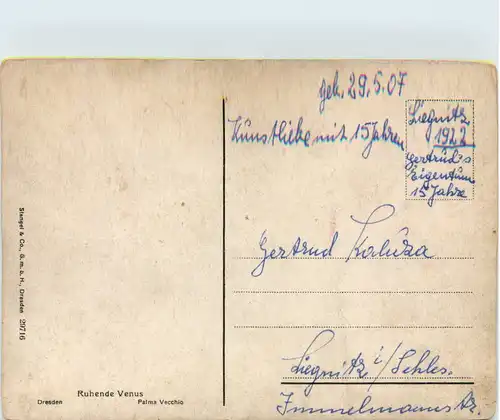 geb. 29.5.07
Kunstliebe mit 15 Jahren
Liegnitz
1922
Gertrud's
Eigentum
15 Jahre
Gertrud Kaluza
Liegnitz i/Schles.
Immelmann
Stengel & Co., G. m. b. H., Dresden 29716
Ruhende Venus
Dresden Palma Vecchio